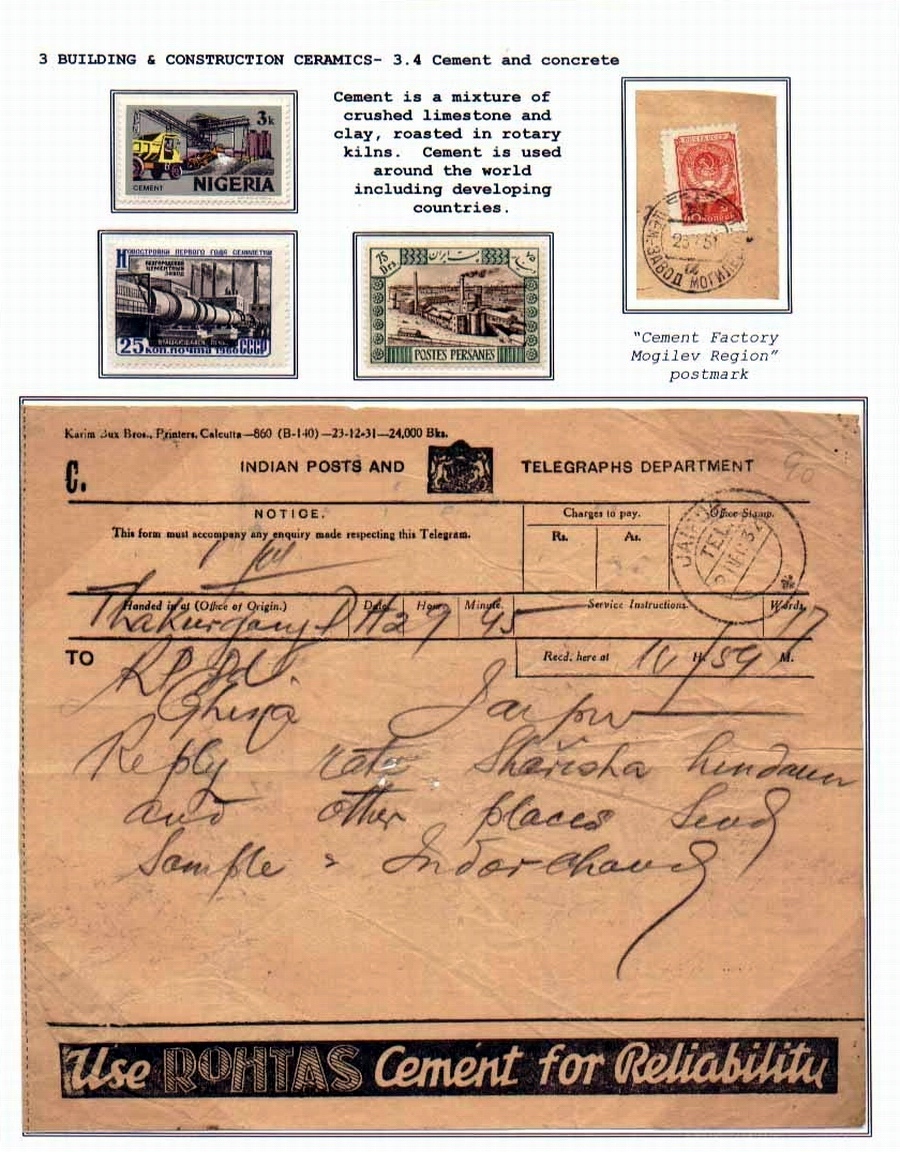 3 BUILDING & CONSTRUCTION CERAMICS- 3.4 Cement and concrete
3k
CEMENT
NIGERIA
Cement is a mixture of
crushed limestone and
clay, roasted in rotary
kilns. Cement is used
around the world
including developing
countries.
НОВОСТРОЙКИ ПЕРВОГО ГОДА СЕМИЛЕТКИ
БЕЛГОРОДСКИЙ
ЦЕМЕНТНЫЙ
ЗАВОД
25 КОП. ПОЧТА 1960 СССР
75
Drs.
POSTES PERSANES
"Cement Factory
Mogilev Region"
postmark
Karim Bux Bros., Printers, Calcutta—860 (B-140)—23-12-31—24,000 Bks.
C.
INDIAN POSTS AND TELEGRAPHS DEPARTMENT
90
NOTICE.
This form must accompany any enquiry made respecting this Telegram.
Charges to pay.
Rs. As.
Office Stamp.
JAIPUR
TEL
Handed in at (Office of Origin.) Date. Hour. Minute. Service Instructions. Words.
Thakurganj H 29 45 17
TO
Recd. here at 10 H. 59 M.
Ghiya Jaipur
Reply rate Sharisha hindaun
and other places Send
Sample = Indorchand
Use ROHTAS Cement for Reliability